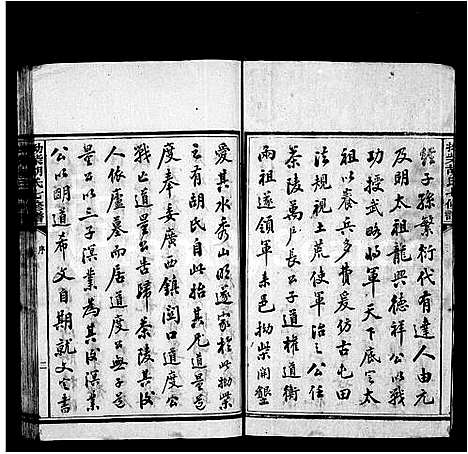 經子孫繁衍代有達人由元
及明太祖龍興德祥公以戰
功授武略將軍天下底定太
祖以養兵多費爰仿古屯田
法規視土荒使軍治之公任
茶陵萬戶長公子道權道衡
兩祖遂領軍來邑拗柴開墾
愛其水秀山明遂家於此拗柴
之有胡氏自此始其後道量公
度奉委廣西鎮閔口道度公
戰亡道量公告歸茶陵其後
人依廬墓而居道度公無子道
量公以三子溟業為其後溟業
公以明道希文自期就文定書
拗柴胡氏七修譜
序
二